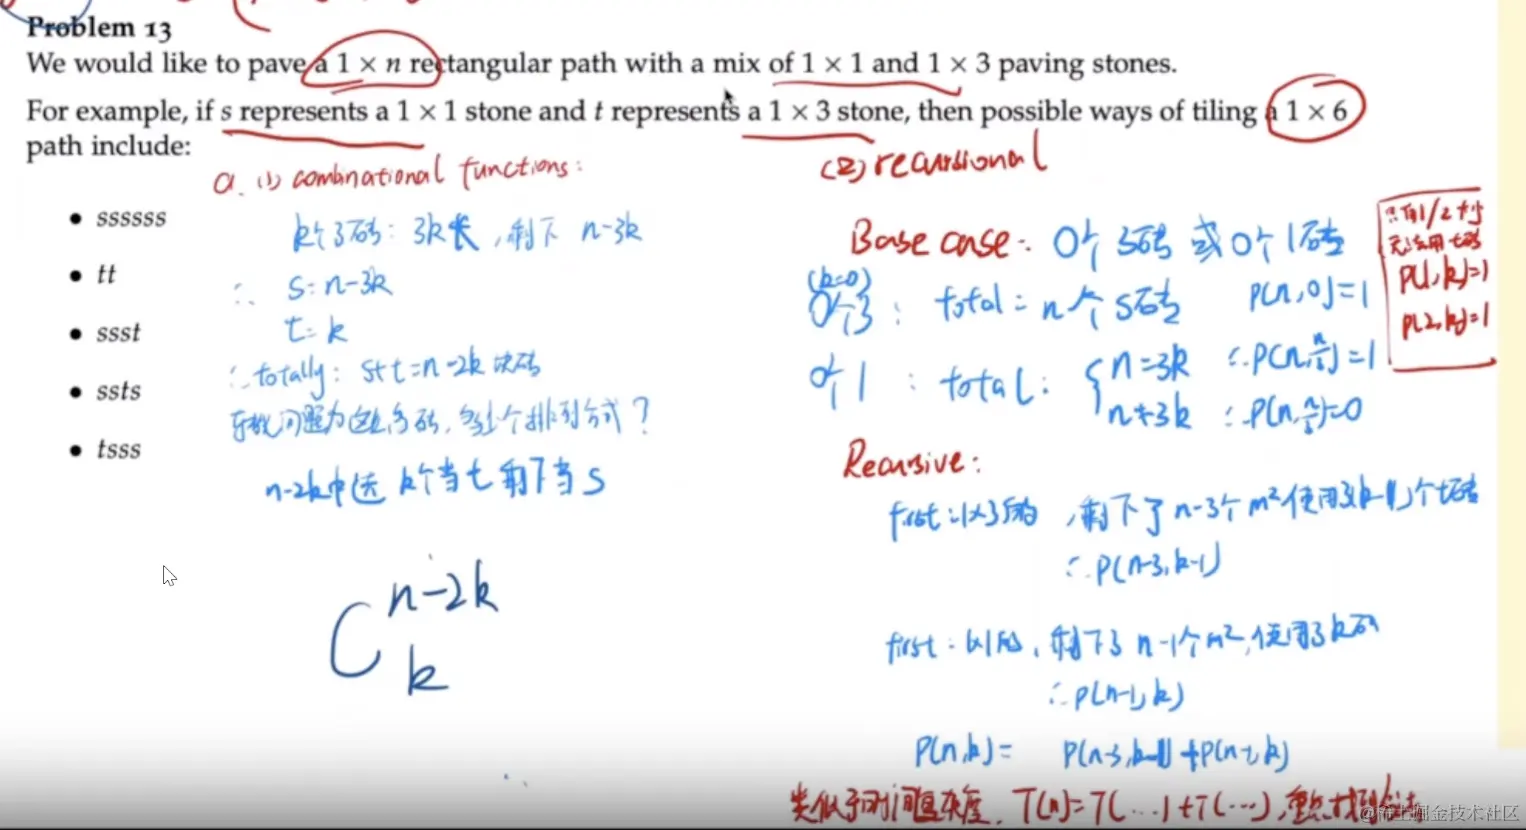 Problem 13
We would like to pave a 1 × n rectangular path with a mix of 1 × 1 and 1 × 3 paving stones.
For example, if s represents a 1 × 1 stone and t represents a 1 × 3 stone, then possible ways of tiling a 1 × 6
path include:
• ssssss
• tt
• ssst
• ssts
• tsss
a. (1) combnational functions:
k个3砖: 3k长, 剩下 n-3k
∴ s=n-3k
t=k
∴ totally: s+t=n-2k 块砖
问题为这些砖, 多少个排列方式?
n-2k中选 k个当t 剩下当s
C n-2k
k
(2) recursional
Base case: 0个3砖 或 0个1砖
(k=0)
0个3: total = n个s砖 P(n,0)=1
0个1: total: { n=3k ∴P(n,n/3)=1
n≠3k ∴P(n,n/3)=0
只有1/2个
无法用t砖
P(1,k)=1
P(2,k)=1
Recursive:
first:1x3的, 剩下了n-3个m²使用(k-1)个t砖
∴P(n-3,k-1)
first: 1x1的, 剩下了n-1个m², 使用了k砖
∴P(n-1,k)
P(n,k)= P(n-3,k-1)+P(n-1,k)
类似于时间复杂度, T(n)=T(...)+T(...),
@稀土掘金技术社区